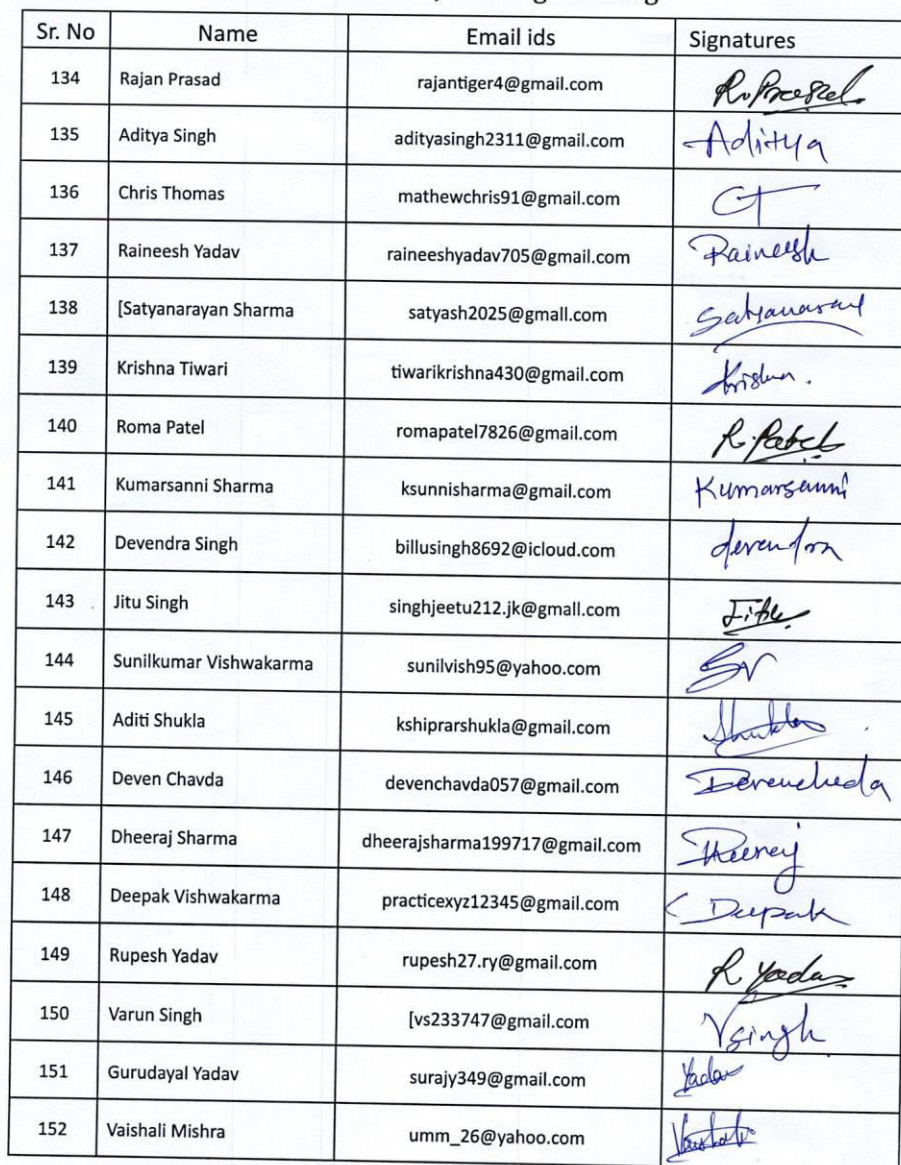 Sr. No Name Email ids Signatures
134 Rajan Prasad rajantiger4@gmail.com R. Prasad
135 Aditya Singh adityasingh2311@gmail.com Aditya
136 Chris Thomas mathewchris91@gmail.com CT
137 Raineesh Yadav raineeshyadav705@gmail.com Raineesh
138 [Satyanarayan Sharma satyash2025@gmall.com
139 Krishna Tiwari tiwarikrishna430@gmail.com Krishna.
140 Roma Patel romapatel7826@gmail.com R. Patel
141 Kumarsanni Sharma ksunnisharma@gmail.com Kumarsanni
142 Devendra Singh billusingh8692@icloud.com devendra
143 Jitu Singh singhjeetu212.jk@gmall.com Jitu
144 Sunilkumar Vishwakarma sunilvish95@yahoo.com SV
145 Aditi Shukla kshiprarshukla@gmail.com Shukla
146 Deven Chavda devenchavda057@gmail.com
147 Dheeraj Sharma dheerajsharma199717@gmail.com Dheeraj
148 Deepak Vishwakarma practicexyz12345@gmail.com Deepak
149 Rupesh Yadav rupesh27.ry@gmail.com R. Yadav
150 Varun Singh [vs233747@gmail.com Vsingh
151 Gurudayal Yadav surajy349@gmail.com Yadav
152 Vaishali Mishra umm_26@yahoo.com Vaishali